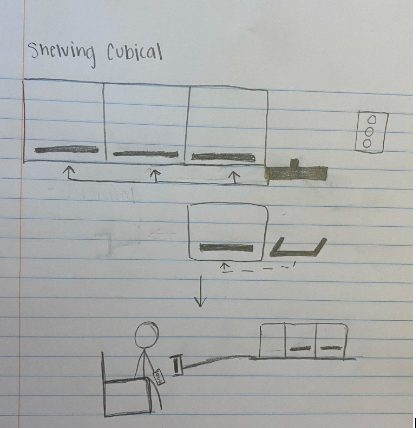 Shelving Cubical